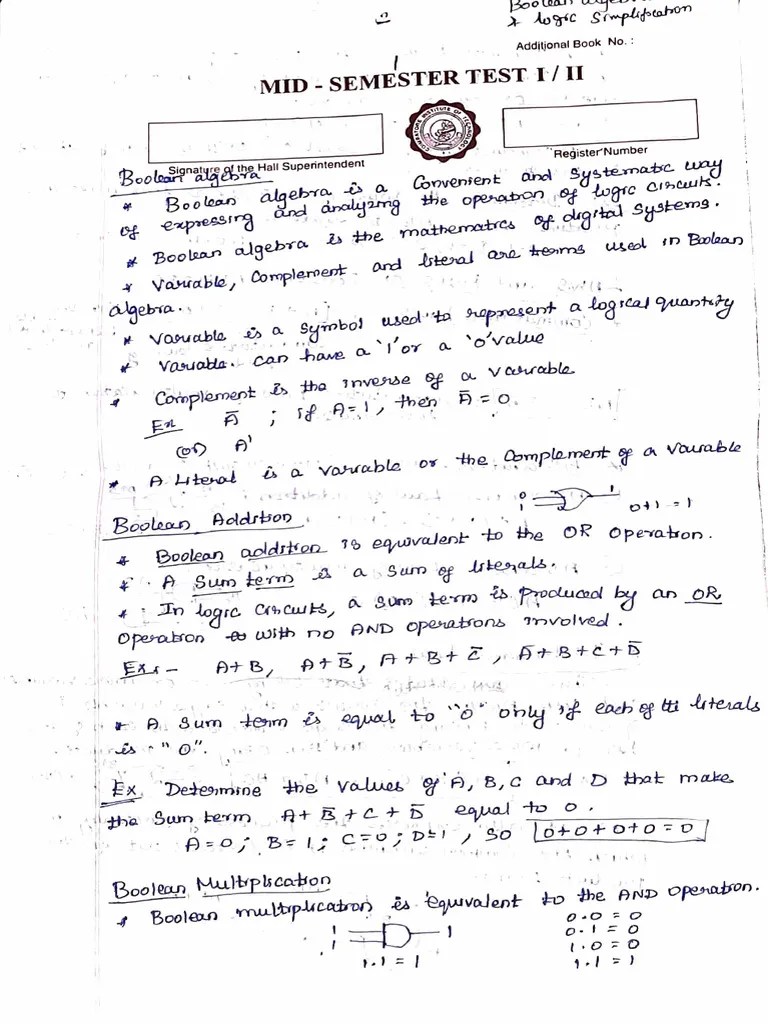 Boolean algebra
* logic Simplification
Additional Book No. :
MID - SEMESTER TEST I / II
COIMBATORE INSTITUTE OF TECHNOLOGY
Signature of the Hall Superintendent
Register Number
Boolean algebra
* Boolean algebra is a Convenient and Systematic way
of expressing and analyzing the operation of logic circuits.
* Boolean algebra is the mathematics of digital systems.
* Variable, Complement and literal are terms used in Boolean
algebra.
* Variable is a Symbol used to represent a logical quantity
* Variable. can have a '1' or a '0' value
* Complement is the inverse of a variable
Ex A̅ ; if A=1, then A̅ = 0.
(or) A'
* A Literal is a variable or the Complement of a Variable
0 1 1 0+1 = 1
Boolean Addition
* Boolean addition is equivalent to the OR Operation.
* A Sum term is a Sum of literals.
* In logic circuits, a sum term is produced by an OR
Operation with no AND operations involved.
Ex:- A+B, A+B̅, A+B+C̅, A̅+B+C+D̅
* A Sum term is equal to "0" only if each of the literals
is "0".
Ex Determine the values of A, B, C and D that make
the Sum term A+B̅+C+D̅ equal to 0.
A=0; B=1; C=0; D=1, so 0+0+0+0=0
Boolean Multiplication
* Boolean multiplication is equivalent to the AND Operation.
0.0 = 0
1 1 1 0.1 = 0
1.0 = 0
1.1 = 1 1.1 = 1